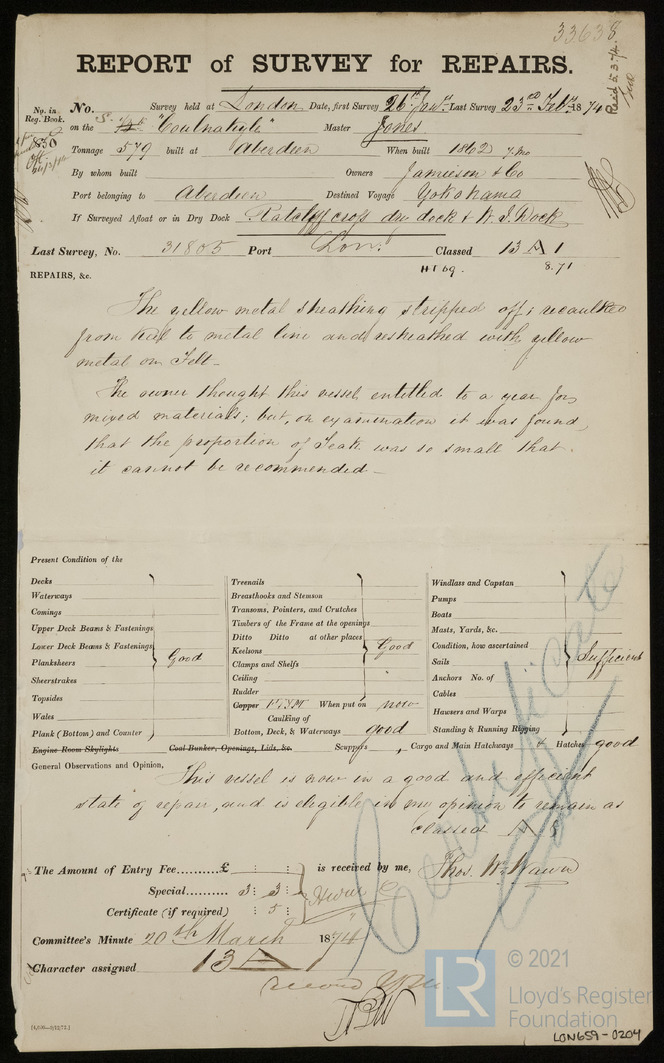 33638
REPORT of SURVEY for REPAIRS.
No. in Reg. Book.
No. Survey held at London Date, first Survey 26th Jany Last Survey 23rd Feby 1874
on the "Coulnakyle" Master Jones
1850
Tonnage 579 built at Aberdeen When built 1862 7 Mo
By whom built Owners Jamieson & Co
Port belonging to Aberdeen Destined Voyage Yokohama
If Surveyed Afloat or in Dry Dock Ratcliff cross dry dock & W. I. Dock
Last Survey, No. 31805 Port Lon. Classed 13 A 1
8.71
REPAIRS, &c.
The yellow metal sheathing stripped off; recaulked
from keel to metal line and resheathed with yellow
metal on Felt.
The owner thought this vessel entitled to a year for
mixed materials; but, on examination it was found
that the proportion of Teak was so small that
it cannot be recommended —
Present Condition of the
Decks
Waterways
Comings
Upper Deck Beams & Fastenings
Lower Deck Beams & Fastenings
Planksheers
Good
Sheerstrakes
Topsides
Wales
Plank (Bottom) and Counter
Treenails
Breasthooks and Stemson
Transoms, Pointers, and Crutches
Timbers of the Frame at the openings
Ditto Ditto at other places
Keelsons
Good
Clamps and Shelfs
Ceiling
Rudder
Copper When put on now
Caulking of
Bottom, Deck, & Waterways good
Windlass and Capstan
Pumps
Boats
Masts, Yards, &c.
Condition, how ascertained
Sails
Sufficient
Anchors No. of
Cables
Hawsers and Warps
Standing & Running Rigging
Engine Room Skylights Coal Bunker, Openings, Lids, &c. Scuppers, Cargo and Main Hatchways & Hatches good
General Observations and Opinion,
This vessel is now in a good and efficient
state of repair, and is eligible in my opinion to remain as
classed A 1
Certificate
The Amount of Entry Fee......... £ : : is received by me,
Special......... 3: 3:
Certificate (if required) : 5:
Thos. W. Wawn
Committee's Minute 20th March 1874
Character assigned 13 A 1
record
LR
© 2021
Lloyd's Register
Foundation
LON659-0204